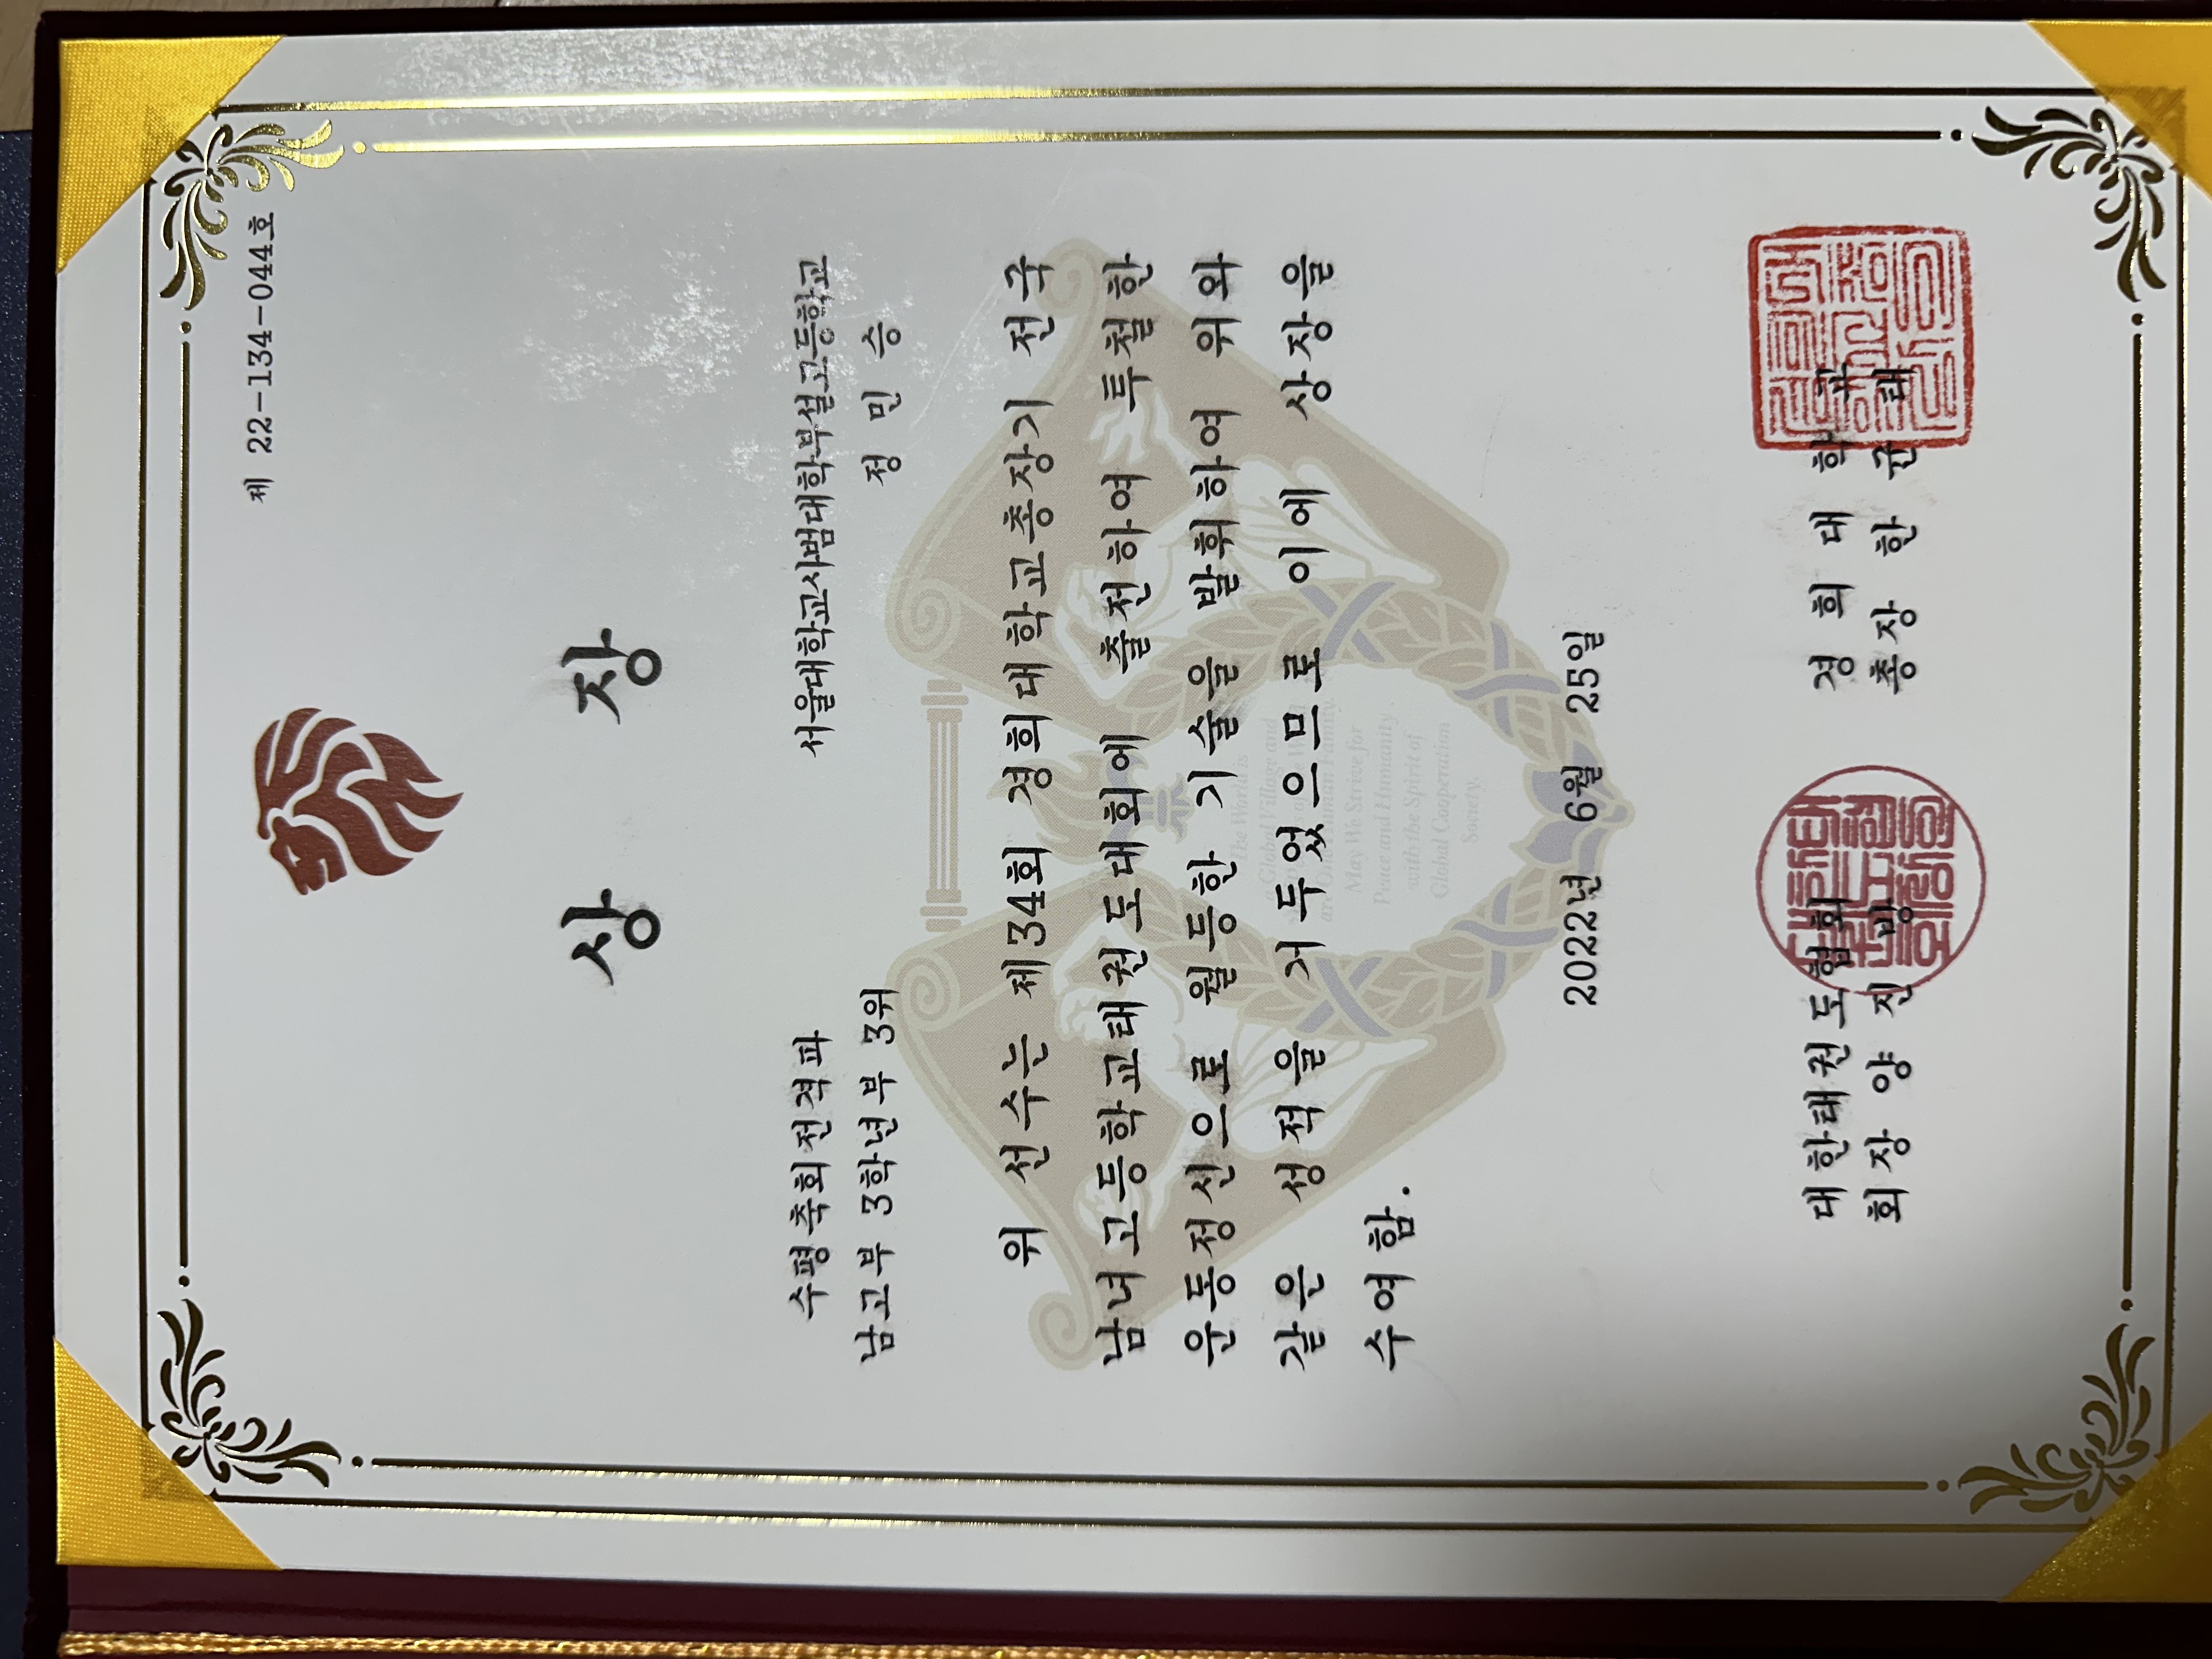 제 22-134-044호
상 장
수평축회전격파
남고부 3학년부 3위
서울대학교사범대학부설고등학교
정 민 승
위 선수는 제34회 경희대학교총장기 전국
남녀고등학교태권도대회에 출전하여 투철한
운동정신으로 월등한 기술을 발휘하여 위와
같은 성적을 거두었으므로 이에 상장을
수여함.
2022년 6월 25일
대한태권도협회
회장 양 진 방
경 희 대 학 교
총장 한 균 태
The World is
Global Village and
May We Strive for
Peace and Humanity
with the Spirit of
Global Cooperation
Society.